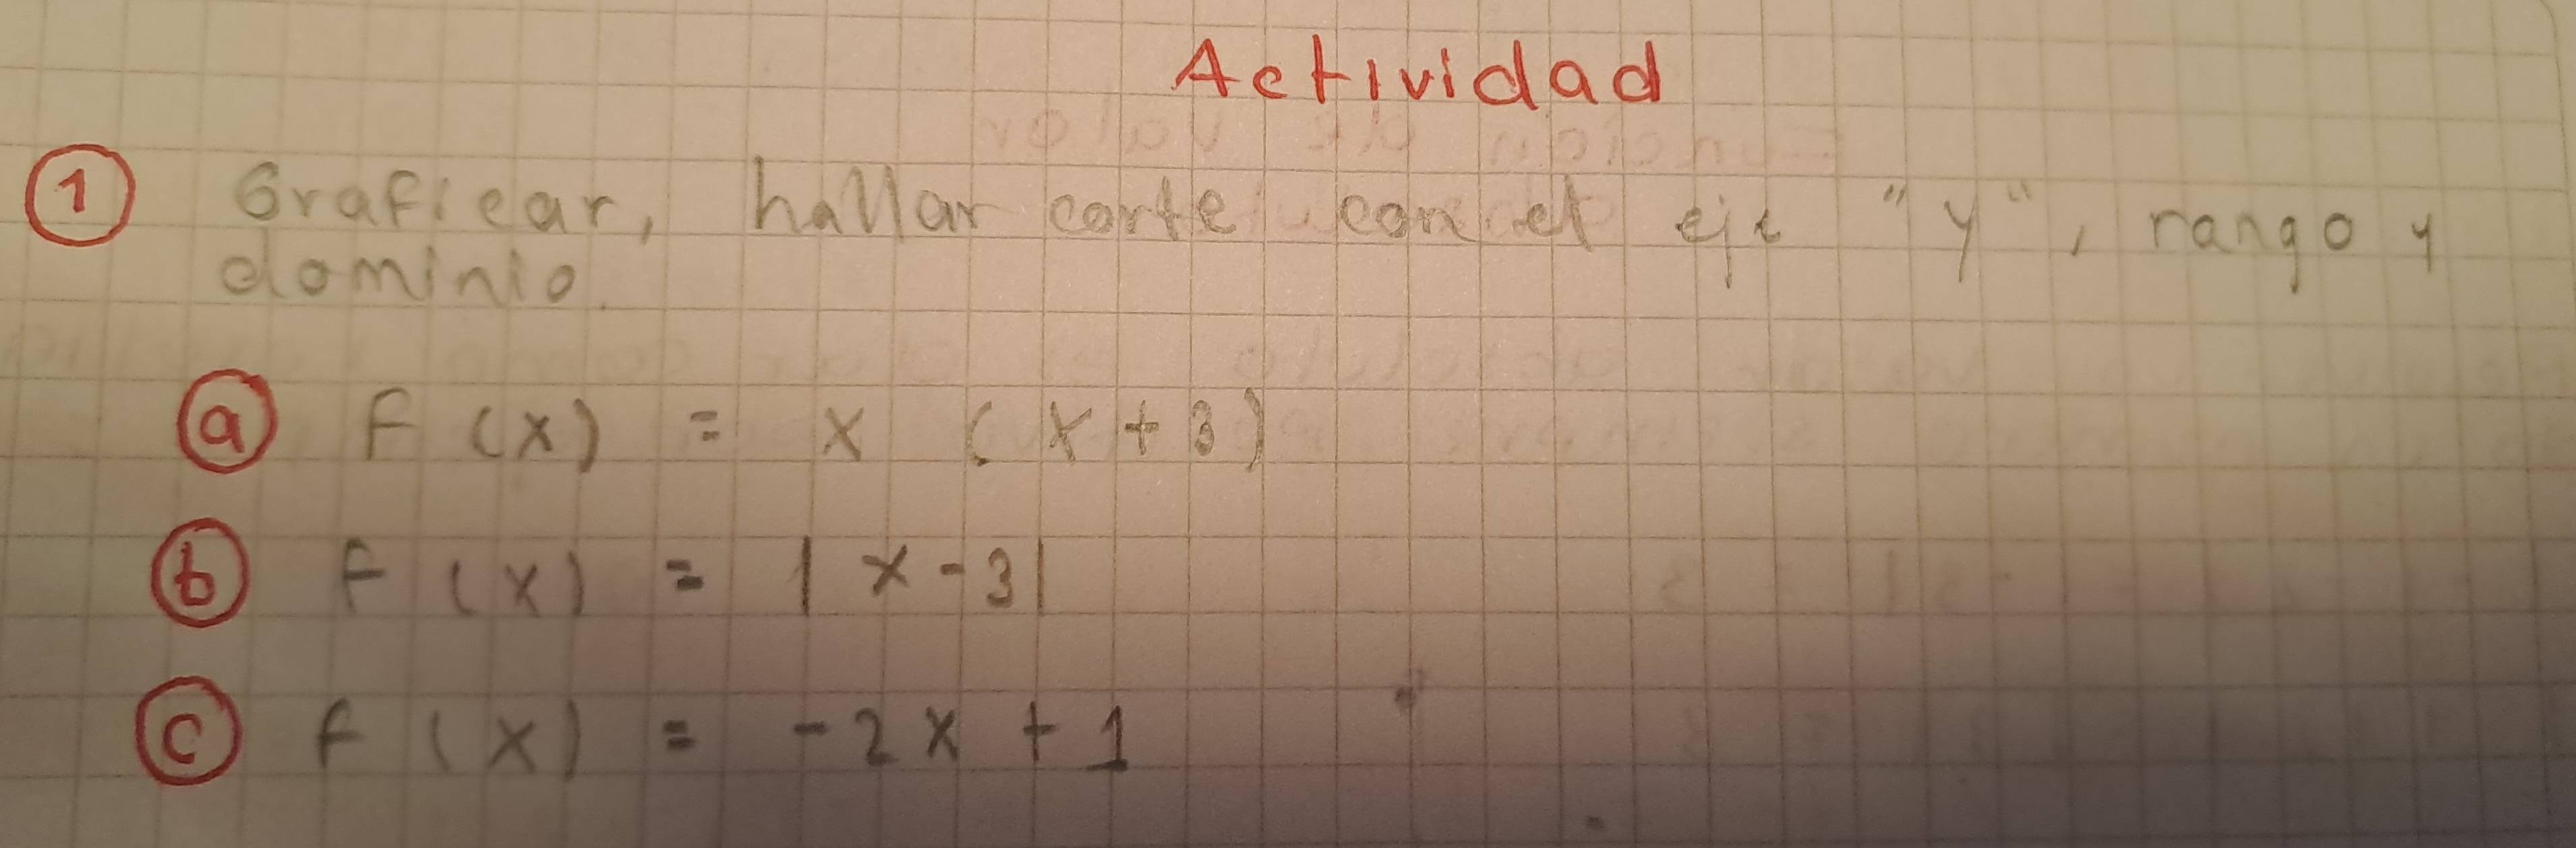 Actividad
1 Graficar, hallar corte con el eje "y", rango y
dominio.
a f(x) = x (x+3)
b f(x) = |x-3|
c f(x) = -2x + 1